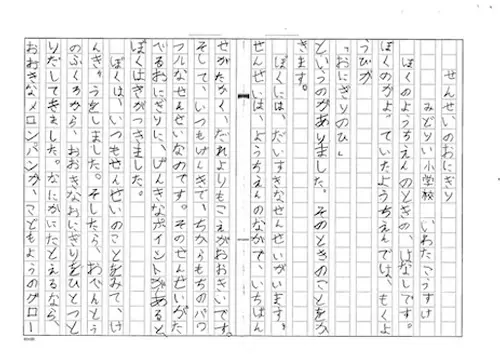 せんせいのおにぎり
みどりい小学校　いわたこうすけ
ぼくのようちえんのときの、はなしです。
ぼくのかよっていたようちえんでは、もくよ
うびが
「おにぎりのひ」
というのがありました。そのときのことをか
きます。
ぼくには、だいすきなせんせいがいます。
せんせいは、ようちえんのなかで、いちばん
せがたかく、だれよりもこえがおおきいです。
そして、いつもげんきで、ちからもちのパワ
フルなせんせいなのです。そのせんせいがた
べるおにぎりに、げんきなポイントがあると、
ぼくはきがつきました。
ぼくは、いつもせんせいのことをみて、け
んきゅうをしました。そしたら、おべんとう
のふくろから、おおきなおにぎりをひとつと
りだしてきました。なにかにたとえるなら、
おおきなメロンパンか、こどもようのグロー